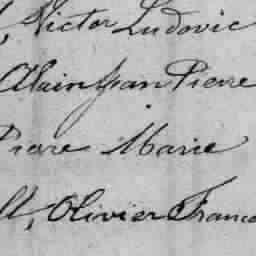 , Victor Ludovic
Alain Jean Pierre
Pierre Marie
ll, Olivier Franco